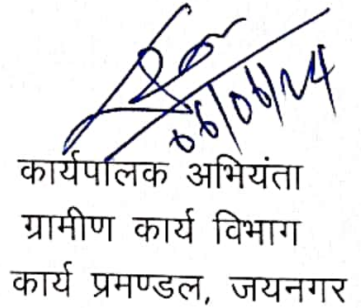 06/06/24
कार्यपालक अभियंता
ग्रामीण कार्य विभाग
कार्य प्रमण्डल, जयनगर